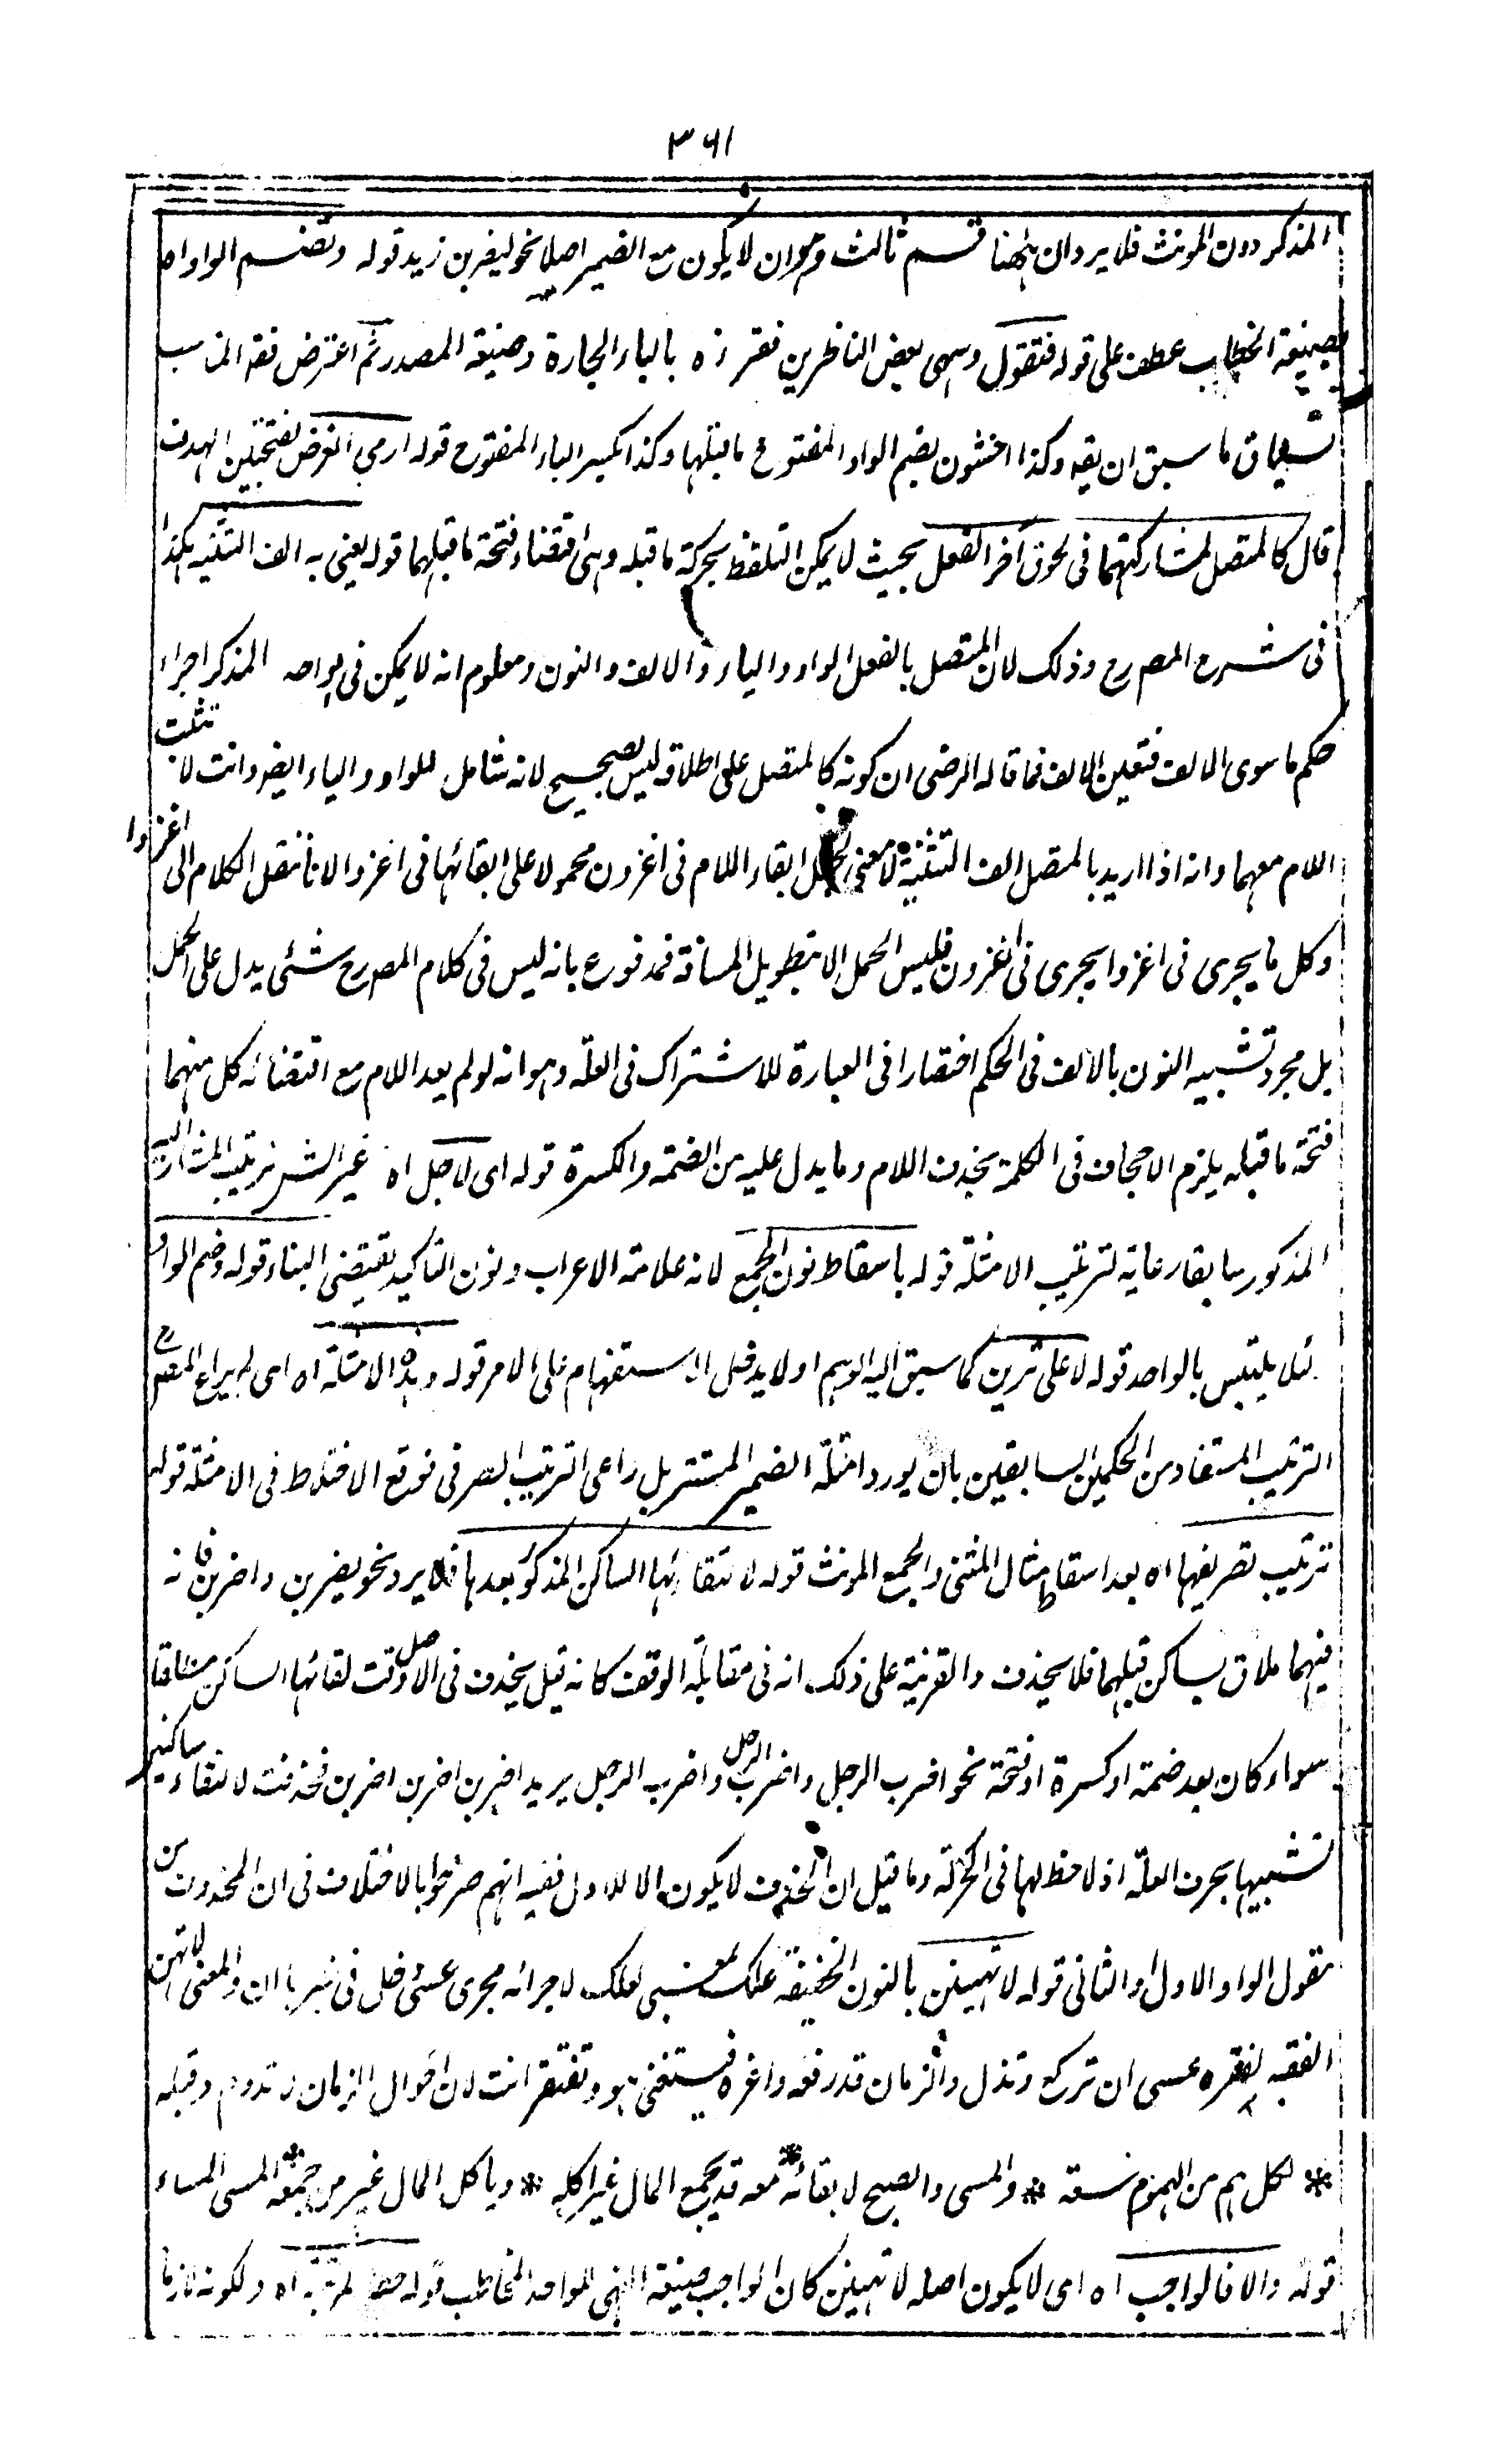 ٣٦١
المذكر دون المونث فلا يرد ان ههنا قسم ثالث وهو ان لا يكون مع الضمير اصلا نحو ليضربن زيد قوله وتضم الواو اه
بصيغة الخطاب عطف على قوله فتقول وسهى بعض الناظرين فقرءه بالباء الجارة وصيغة المصدر ثم اعترض فقه المناسب
بسياق ما سبق ان يقه وكذا اخشون بضم الواو المفتوح ما قبلها وكذا بكسر الياء المفتوح قوله ارمى الغرض بفتحتين الهدف
قال كالمتصل لمشاركتهما فى لحوق آخر الفعل بحيث لا يمكن التلفظ بحركة ما قبله وهى اقتضاء فتحة ما قبلهما قوله يعنى به الف التثنيه هكذا
فى شرح المصرح وذلك لان المتصل بالفعل الواو والياء والالف والنون ومعلوم انه لا يمكن فى الواحد المذكر اجراء
حكم ما سوى الالف فتعين الالف فما قاله الرضى ان كونه كالمتصل على اطلاقه ليس بصحيح لانه شامل للواو والياء ايضه وانت لا تثبت
اللام معهما وانه اذا اريد بالمتصل الف التثنية لا معنى لجعل ابقاء اللام فى اغزون محمولا على ابقائها فى اغزوا لانا ننقل الكلام الى اغزوا
وكل ما يجرى فى اغزوا يجرى فى اغزون فليس الحمل الا تطويل المسافة فمدفوع بانه ليس فى كلام المصرح شئى يدل على الحمل
بل مجرد تشبيه النون بالالف فى الحكم اختصارا فى العبارة للاشتراك فى العلة وهو انه لو لم يعد اللام مع اقتضائه كل منهما
فتحة ما قبله يلزم الاجحاف فى الكلمة بحذف اللام وما يدل عليه من الضمة والكسرة قوله اى لاجل اه غير النشر ترتيب المشار اليه
المذكور سابقا رعاية لترتيب الامثلة قوله باسقاط نون الجمع لانه علامة الاعراب ونون التاكيد يقتضى البناء قوله وضم الواو
لئلا يلتبس بالواحد قوله لا على ترين كما سبق اليه الوهم اولا يدخل الاستفهام على الامر قوله وهذه الامثلة اه اى لم يراع المصرح
الترتيب المستفاد من الحكمين السابقين بان يورد امثلة الضمير المستتر بل راعى الترتيب الصرفى فوقع الاختلاط فى الامثلة قوله
ترتيب تصريفها اه بعد اسقاط مثال المثنى والجمع المونث قوله لالتقائها الساكن المذكور بعدها فلا يرد نحو يضربن واضربن فانه
فيهما ملاق بساكن قبلهما فلا يحذف والقرينة على ذلك انه فى مقابلة الوقف كانه قيل يحذف فى الاصل وقت لقائها الساكن مطلقا
سواء كان بعد ضمة او كسرة او فتحة نحو اضرب الرجل واضرب الرجل واضرب الرجل يريد اضربن اضربن اضربن فحذفت لالتقاء ساكنين
تشبيها بحرف العلة اذ لا حظ لها فى الحركة وما قيل ان الحذف لا يكون الا للاول ففيه انهم صرحوا بالاختلاف فى ان المحذوف من
مقول الواو الاول او الثانى قوله لا تهينن بالنون الخفيفة علك بمعنى لعلك لاجرائه مجرى عسى دخل فى خبرها ان والمعنى لا تهن
الفقير لفقره عسى ان تركع وتذل والزمان قد رفعه واغره فيستغنى هو وتفتقر انت لان احوال الزمان لا تدوم وقبله
* لكل هم من الهموم سعه * والمسى والصبح لا بقائه معه * قد يجمع المال غير آكله * ويأكل المال غير من جمعه * المسى المساء
قوله والا فالواجب اه اى لا يكون اصله لا تهينن كان الواجب صيغة النهى للواحد المخاطب قوله حطا لمرتبه اه ولكونه لازما